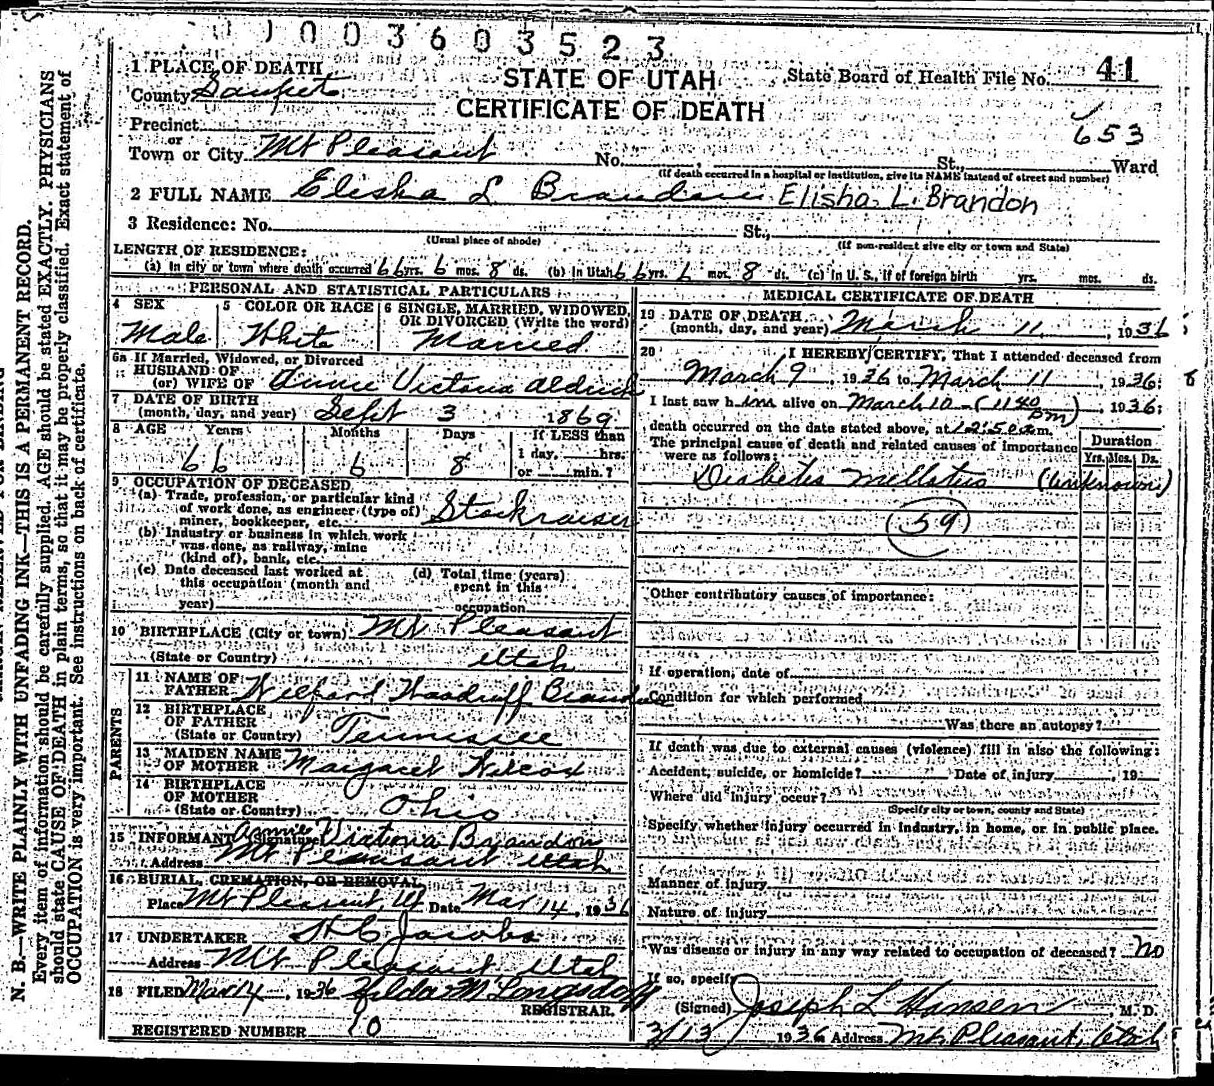 0 1 0 0 3 6 0 3 5 2 3
1 PLACE OF DEATH
STATE OF UTAH
CERTIFICATE OF DEATH
State Board of Health File No. 41
County Sanpete
653
Precinct
or
Town or City Mt Pleasant No. , St., Ward
(If death occurred in a hospital or institution, give its NAME instead of street and number)
2 FULL NAME Elisha L Brandon Elisha L. Brandon
3 Residence: No. St.,
(Usual place of abode) (If non-resident give city or town and State)
LENGTH OF RESIDENCE:
(a) In city or town where death occurred 66 yrs. 6 mos. 8 ds. (b) In Utah 66 yrs. 6 mos. 8 ds. (c) In U. S., if of foreign birth yrs. mos. ds.
PERSONAL AND STATISTICAL PARTICULARS
4 SEX
Male
5 COLOR OR RACE
White
6 SINGLE, MARRIED, WIDOWED, OR DIVORCED (Write the word)
Married
6a If Married, Widowed, or Divorced
HUSBAND OF
(or) WIFE OF Annie Victoria Aldrich
7 DATE OF BIRTH
(month, day, and year) Sept 3 1869
8 AGE Years Months Days If LESS than
66 6 8 1 day, hrs.
or min.?
9 OCCUPATION OF DECEASED
(a) Trade, profession, or particular kind
of work done, as engineer (type of)
miner, bookkeeper, etc. Stockraiser
(b) Industry or business in which work
was done, as railway, mine
(kind of), bank, etc.
(c) Date deceased last worked at
this occupation (month and
year)
(d) Total time (years)
spent in this
occupation
10 BIRTHPLACE (City or town) Mt Pleasant
(State or Country) Utah
PARENTS
11 NAME OF
FATHER Wilford Woodruff Brandon
12 BIRTHPLACE
OF FATHER
(State or Country) Tennessee
13 MAIDEN NAME
OF MOTHER Margaret Wilcox
14 BIRTHPLACE
OF MOTHER
(State or Country) Ohio
15 INFORMANT Annie Victoria Brandon
(Signature)
Address Mt Pleasant Utah
16 BURIAL, CREMATION, OR REMOVAL
Place Mt Pleasant, Ut Date Mar 14, 1936
17 UNDERTAKER
Address Mt Pleasant, Utah
18 FILED Mar 14, 1936 Hilda M Longsdorf
REGISTRAR.
REGISTERED NUMBER 10
MEDICAL CERTIFICATE OF DEATH
19 DATE OF DEATH
(month, day, and year) March 11, 1936
20 I HEREBY CERTIFY, That I attended deceased from
March 9, 1936 to March 11, 1936;
I last saw him alive on March 10 - (11 40 pm), 1936;
death occurred on the date stated above, at 12:50 am.
The principal cause of death and related causes of importance
were as follows:
Duration
Yrs. Mos. Ds.
Diabetes Mellatus (unknown)
59
Other contributory causes of importance:
If operation, date of
Condition for which performed
Was there an autopsy?
If death was due to external causes (violence) fill in also the following:
Accident, suicide, or homicide? Date of injury , 19
Where did injury occur?
(Specify city or town, county and State)
Specify whether injury occurred in industry, in home, or in public place.
Manner of injury
Nature of injury
Was disease or injury in any way related to occupation of deceased? No
If so, specify
(Signed) Joseph L Hansen M. D.
3/13 1936 Address Mt. Pleasant, Utah
N. B.—WRITE PLAINLY WITH UNFADING INK—THIS IS A PERMANENT RECORD.
Every item of information should be carefully supplied. AGE should be stated EXACTLY. PHYSICIANS
should state CAUSE OF DEATH in plain terms, so that it may be properly classified. Exact statement of
OCCUPATION is very important. See instructions on back of certificate.